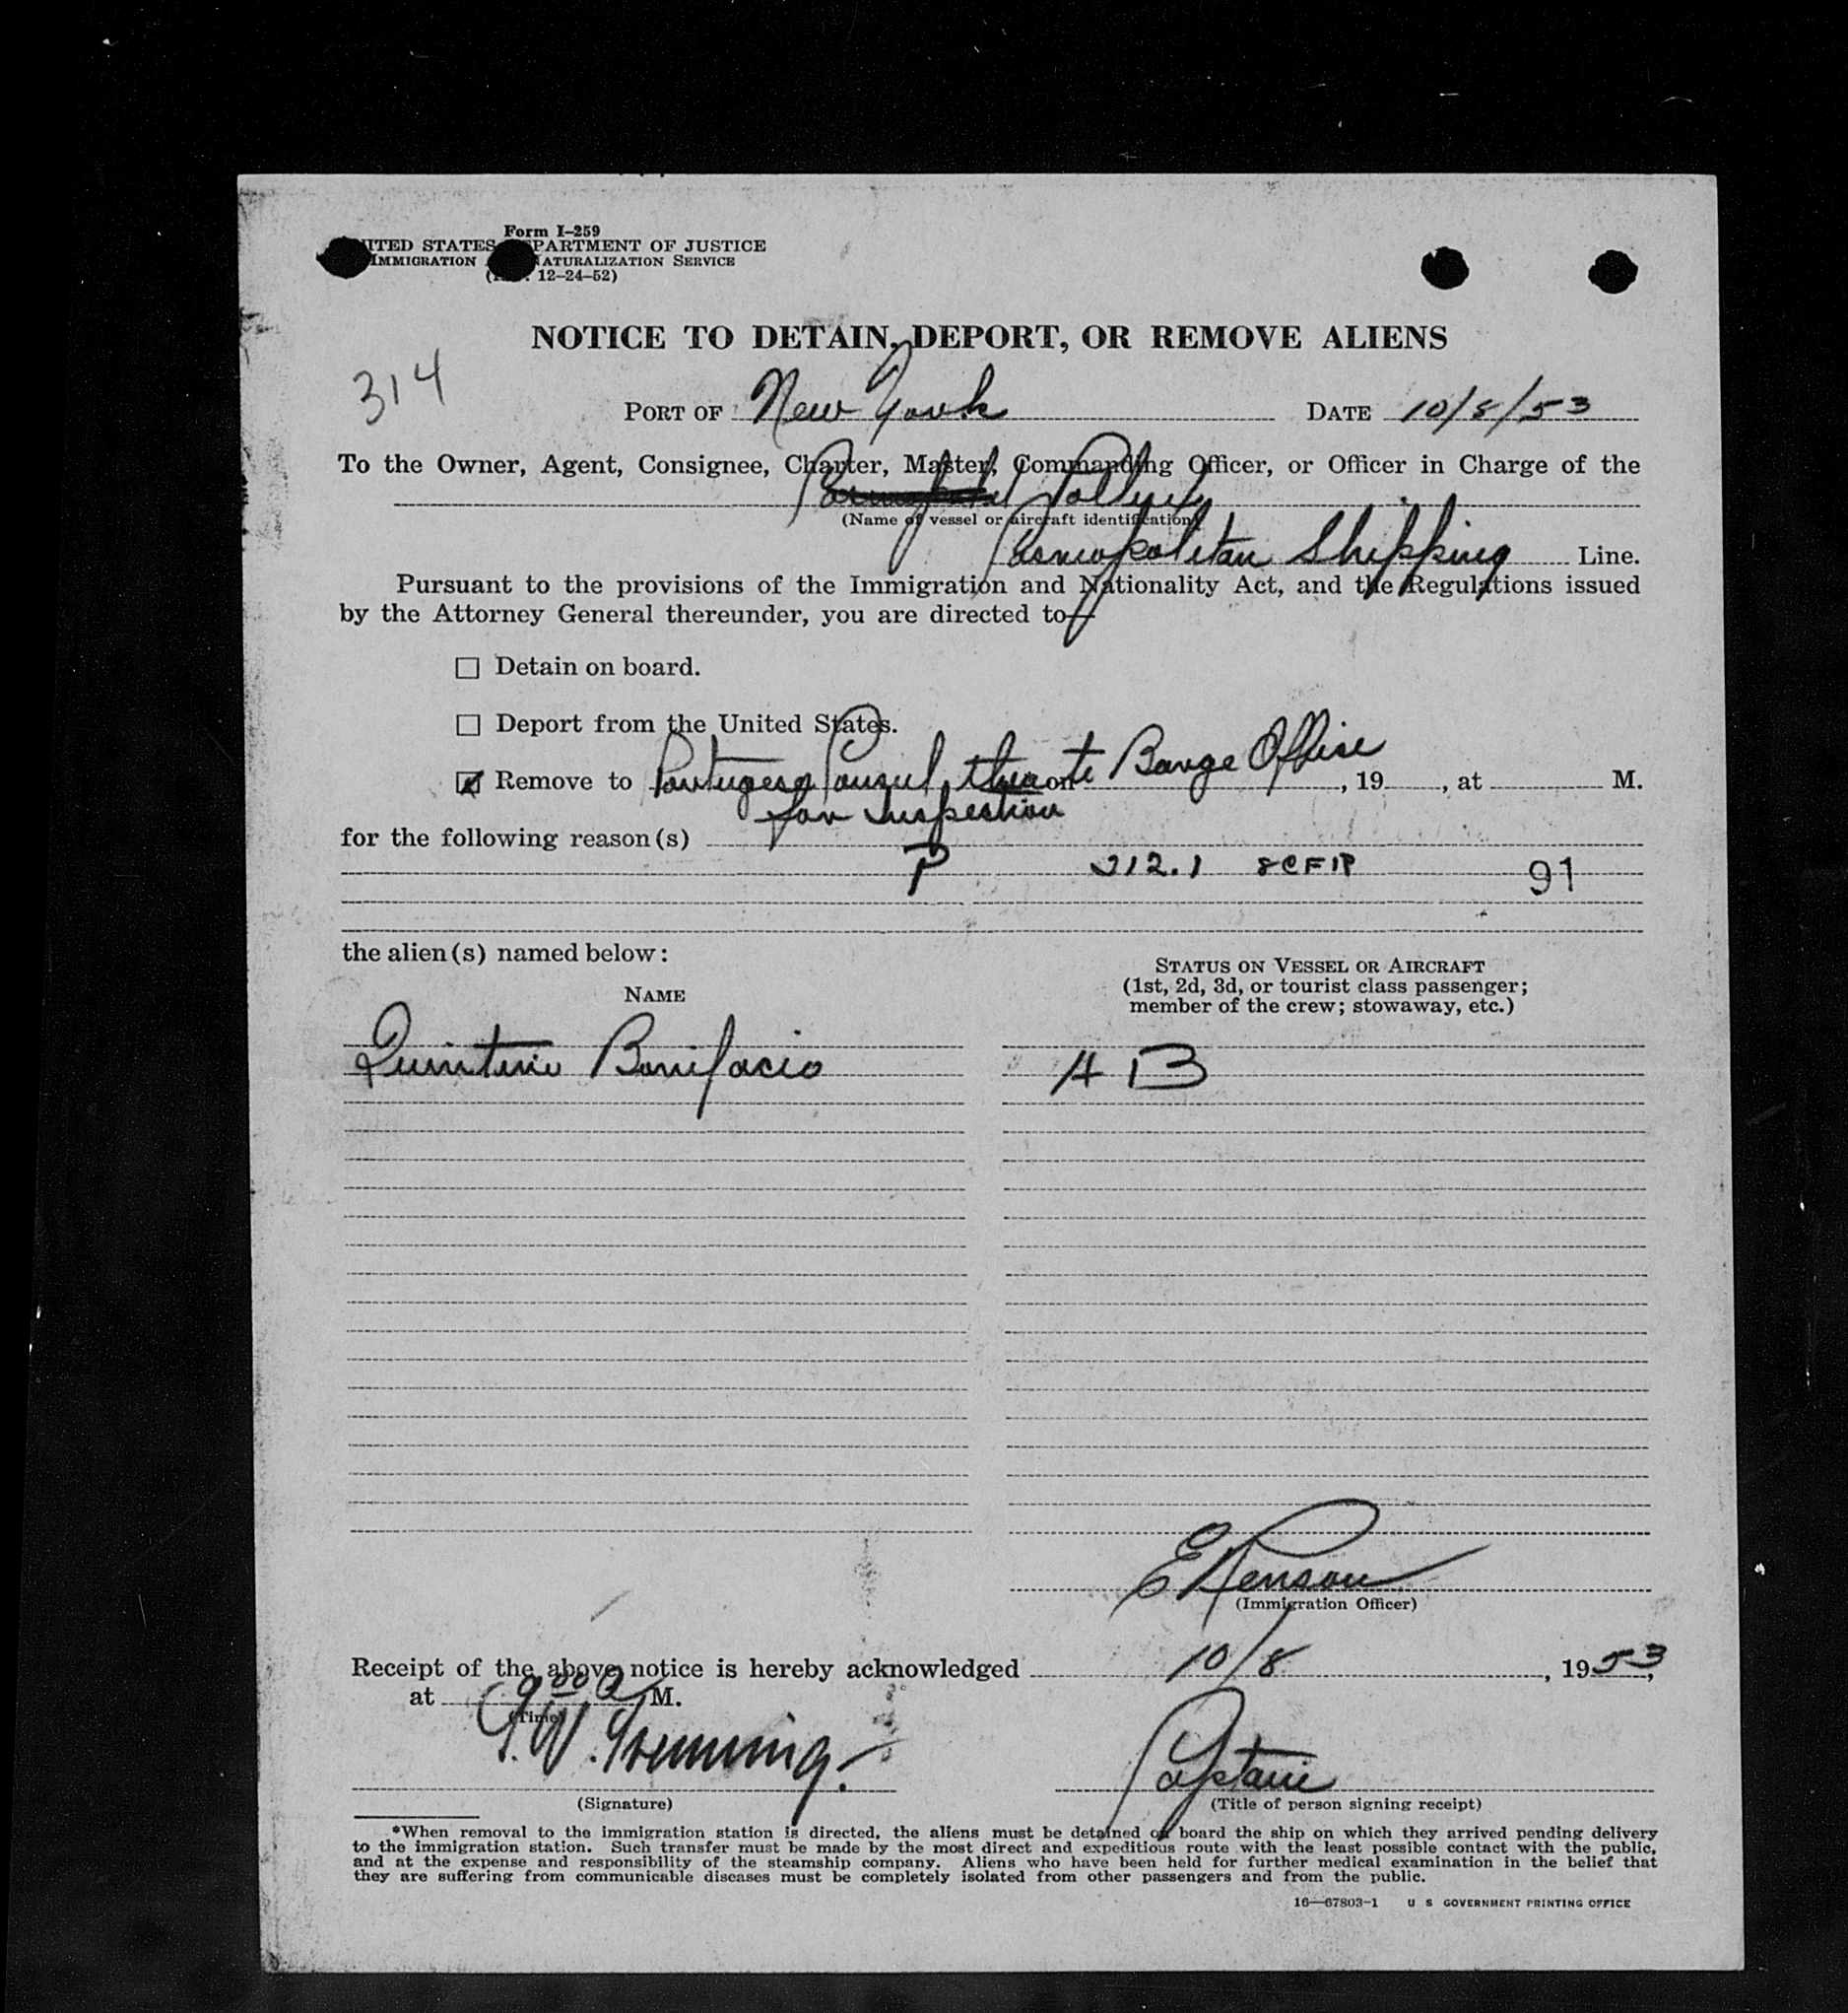 Form I-259
UNITED STATES DEPARTMENT OF JUSTICE
IMMIGRATION NATURALIZATION SERVICE
12-24-52)
NOTICE TO DETAIN, DEPORT, OR REMOVE ALIENS
314
PORT OF New York DATE 10/8/53
To the Owner, Agent, Consignee, Charter, Master, Commanding Officer, or Officer in Charge of the
(Name of vessel or aircraft identification)
Cosmopolitan Shipping Line.
Pursuant to the provisions of the Immigration and Nationality Act, and the Regulations issued
by the Attorney General thereunder, you are directed to—
Detain on board.
Deport from the United States.
Remove to Portugese Consul thence on to Barge Office, 19 , at M.
for Inspection
for the following reason(s)
P 212.1 8CFR 91
the alien(s) named below:
STATUS ON VESSEL OR AIRCRAFT
(1st, 2d, 3d, or tourist class passenger;
member of the crew; stowaway, etc.)
NAME
Quintino Bonifacio AB
E Renson
(Immigration Officer)
Receipt of the above notice is hereby acknowledged 10/8, 1953,
at 9 00 A M.
(Time)
Captain
(Signature) (Title of person signing receipt)
*When removal to the immigration station is directed, the aliens must be detained on board the ship on which they arrived pending delivery
to the immigration station. Such transfer must be made by the most direct and expeditious route with the least possible contact with the public,
and at the expense and responsibility of the steamship company. Aliens who have been held for further medical examination in the belief that
they are suffering from communicable diseases must be completely isolated from other passengers and from the public.
16—67803-1 U S GOVERNMENT PRINTING OFFICE